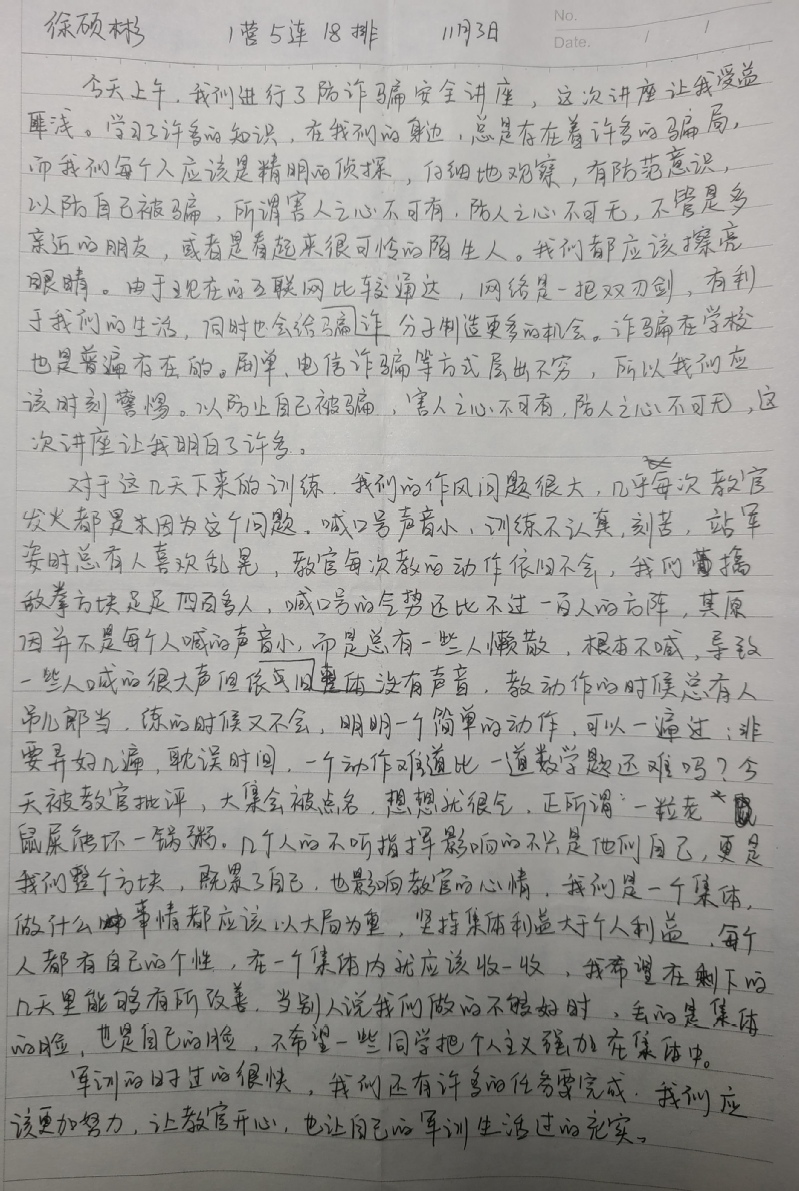 徐硕彬 1营5连18排 11月3日
No.
Date. / /
今天上午,我们进行了防诈骗安全讲座,这次讲座让我受益
匪浅。学习了许多的知识,在我们的身边,总是存在着许多的骗局,
而我们每个人应该是精明的侦探,仔细地观察,有防范意识,
以防自己被骗,所谓害人之心不可有,防人之心不可无,不管是多
亲近的朋友,或者是看起来很可怜的陌生人。我们都应该擦亮
眼睛。由于现在的互联网比较通达,网络是一把双刃剑,有利
于我们的生活,同时也会给骗诈分子制造更多的机会。诈骗在学校
也是普遍存在的。刷单、电信诈骗等方式层出不穷,所以我们应
该时刻警惕。以防止自己被骗,害人之心不可有,防人之心不可无,这
次讲座让我明白了许多。
对于这几天下来的训练,我们的作风问题很大,几乎每次教官
发火都是因为这个问题。喊口号声音小,训练不认真,刻苦,站军
姿时总有人喜欢乱晃,教官每次教的动作依旧不会,我们擒
敌拳方块足足四百多人,喊口号的气势还比不过一百人的方阵,其原
因并不是每个人喊的声音小,而是总有一些人懒散,根本不喊,导致
一些人喊的很大声但依旧整体没有声音,教动作的时候总有人
吊儿郎当,练的时候又不会,明明一个简单的动作,可以一遍过;非
要弄好几遍,耽误时间,一个动作难道比一道数学题还难吗?今
天被教官批评,大集会被点名,想想就很气,正所谓"一粒老
鼠屎能坏一锅粥。几个人的不听指挥影响的不只是他们自己,更是
我们整个方块,既累了自己,也影响教官的心情,我们是一个集体,
做什么事情都应该以大局为重,坚持集体利益大于个人利益,每个
人都有自己的个性,在一个集体内就应该收一收,我希望在剩下的
几天里能够有所改善,当别人说我们做的不够好时,丢的是集体
的脸,也是自己的脸,不希望一些同学把个人主义强加在集体中。
军训的日子过的很快,我们还有许多的任务要完成,我们应
该更加努力,让教官开心,也让自己的军训生活过的充实。